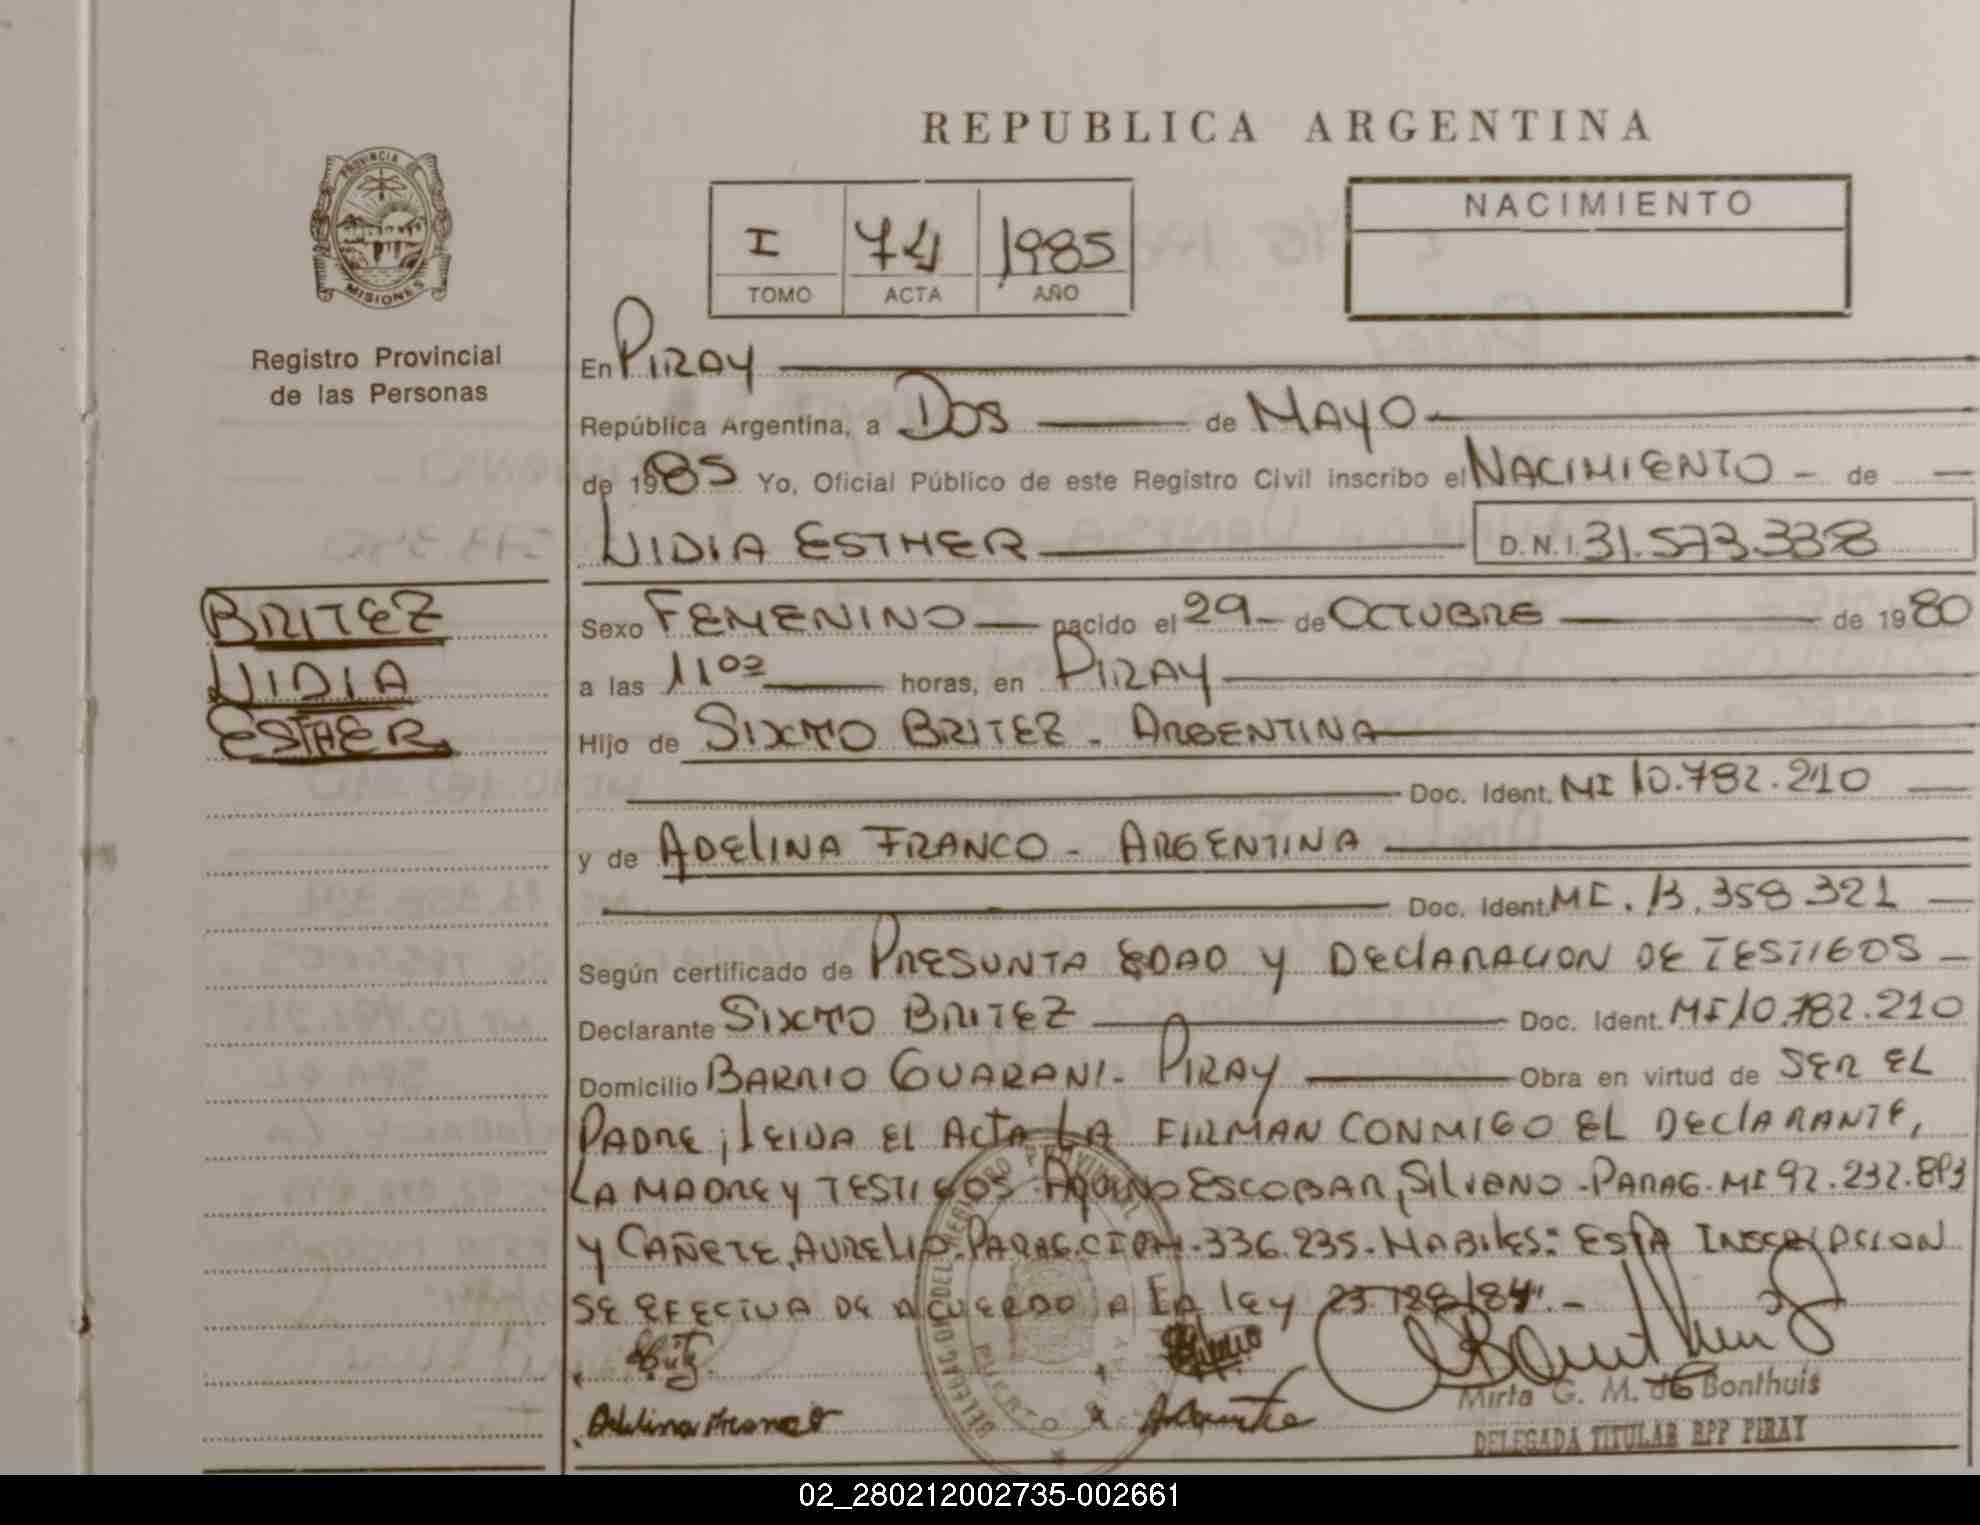 REPUBLICA ARGENTINA
PROVINCIA DE
MISIONES
Registro Provincial
de las Personas
I 74 1985
TOMO ACTA AÑO
NACIMIENTO
En PIRAY
República Argentina, a DOS de MAYO
de 1985 Yo, Oficial Público de este Registro Civil inscribo el NACIMIENTO - de
LIDIA ESTHER D.N.I. 31.573.338
BRITEZ
LIDIA
ESTHER
Sexo FEMENINO nacido el 29 - de OCTUBRE de 1980
a las 11 00 horas, en PIRAY
Hijo de SIXTO BRITEZ - ARGENTINA
Doc. Ident. MI 10.782.210
y de ADELINA FRANCO - ARGENTINA
Doc. Ident. MI. 13.358.321
Según certificado de PRESUNTA EDAD Y DECLARACION DE TESTIGOS -
Declarante SIXTO BRITEZ Doc. Ident. MI 10.782.210
Domicilio BARRIO GUARANI - PIRAY Obra en virtud de SER EL
PADRE, LEIDA EL ACTA LA FIRMAN CONMIGO EL DECLARANTE,
LA MADRE Y TESTIGOS AQUINO ESCOBAR, SILVANO - PARAG. MI 92.232.893
Y CAÑETE, AURELIO - PARAG. 336.235 - HABILES: ESTA INSCRIPCION
SE EFECTUA DE ACUERDO A LA LEY 23.128/84. -
Adelina Franco
Mirta G. M. de Bonthuis
DELEGADA TITULAR RPP PIRAY
02_280212002735-002661